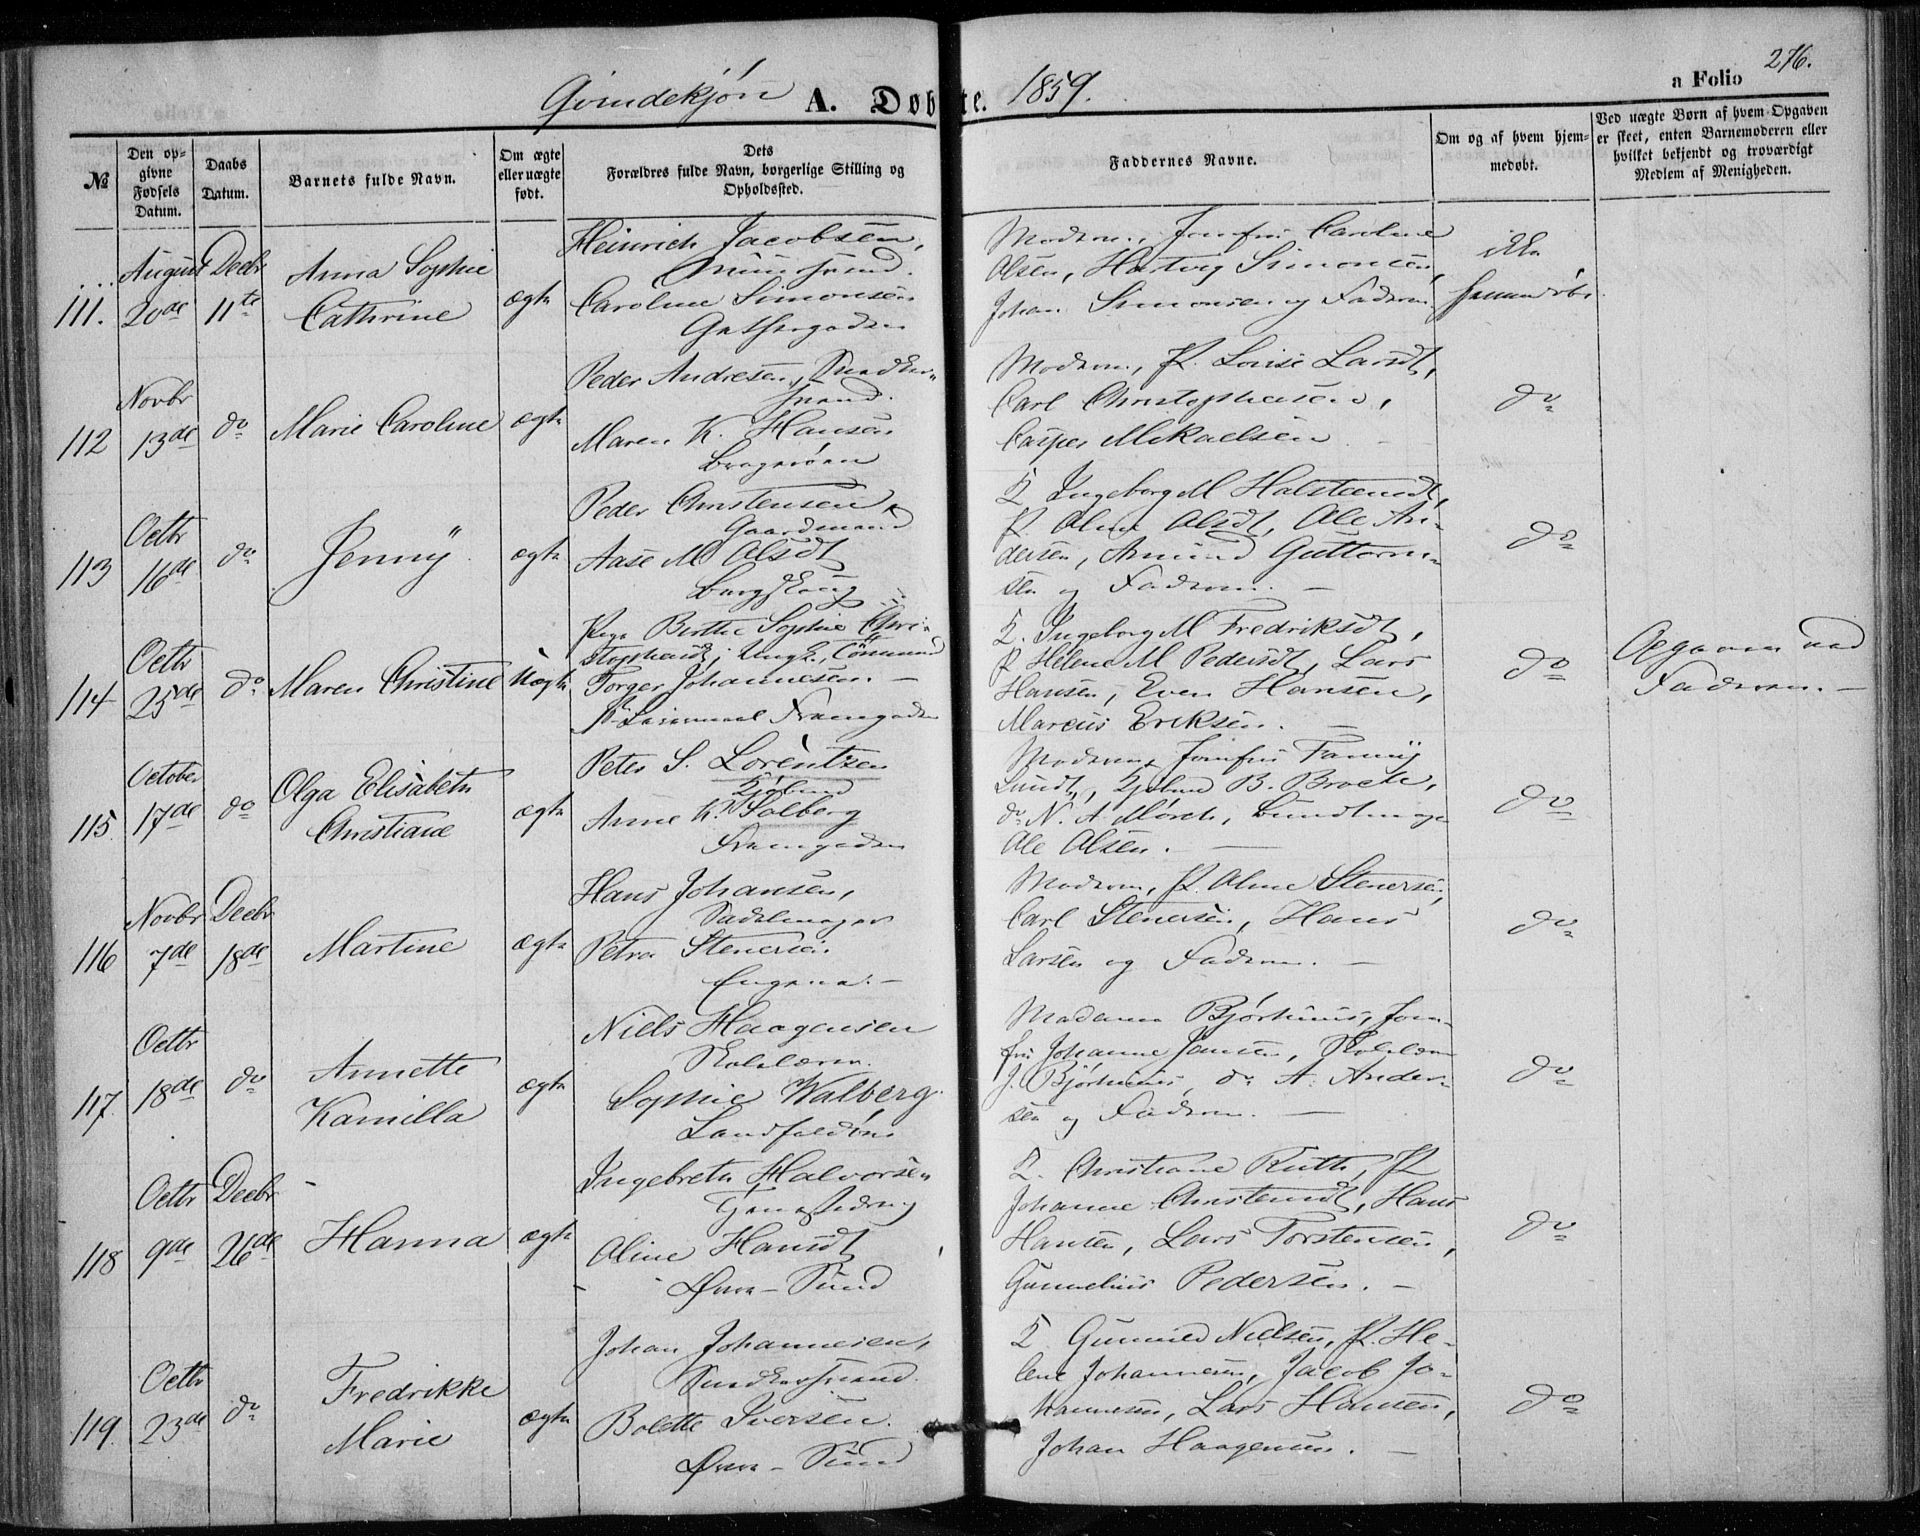 Qvindekjøn A. Døbte. 1859.
a Folio 276.
No
Den opgivne Fødsels Datum.
Daabs Datum.
Barnets fulde Navn.
Om ægte eller uægte født.
Dets Forældres fulde Navn, borgerlige Stilling og Opholdssted.
Faddernes Navne.
Om og af hvem hjemmedøbt.
Ved uægte Børn af hvem Opgaven er skeet, enten Barnemoderen eller hvilket bekjendt og troværdigt Medlem af Menigheden.
111.
August 20de
Decbr 11te
Anna Sophie
Cathrine
ægte
Heinrich Jacobsen,
Caroline Simonsen
Moderen, Jomfru Caroline
Olsen, Hartvig Simonsen,
Johan Simonsen og Faderen
ikke
hjemmedøbt
112
Novbr 13de
do
Marie Caroline
ægte
Peder Andresen, Snedker-
svend.
Maren K. Hansen
Bragerøen
Moderen, P. Louise Larsdt,
Carl Christophersen,
Casper Mikaelsen. -
do
113
Octbr 16de
do
Jenny
ægte
Peder Christensen,
Gaardmand
Aase M Olsdt
K Ingeborg M Halstensdt,
P. Oline Olsdt, Ole An-
dersen, Amund Guttorm-
sen og Faderen. -
do
114
Octbr 25de
do
Maren Christine
Uægte
Pige Berthe Sophie Chri-
stophersdt, Ungk. Tømmermd
Torger Johannesen. -
K. Ingeborg M Fredriksdt,
P Helene M Pedersdt, Lars
Hansen, Even Hansen,
Marcus Eriksen. -
do
Opgaven ved
Faderen. -
115
October 17de
do
Olga Elisabeth
Christiane
ægte
Peter S. Lorentzen
Kjøbmd
Anne K. Solberg
Moderen, Jomfru Fanny
Lundt, Kjøbmd B. Brocke,
do N. A. Mørch, Bundtmager
Ole Olsen. -
do
116
Novbr 7de
Decbr 18de
Martine
ægte
Hans Johansen,
Sadelmager
Petra Stenersen
Engene. -
Moderen, P. Oline Stenersen,
Carl Stenersen, Hans
Larsen og Faderen. -
do
117.
Octbr 18de
do
Annette
Kamilla
ægte
Niels Haagensen
Skolelærer.
Sophie Walberg.
Landfaldøen
Madame Bjørhuus, Jom-
fru Johanne Jansen, Skolelærer
J. Bjørhuus, do A. Ander-
sen og Faderen. -
do
118
Octbr 9de
Decbr 26de
Hanna
ægte
Ingebreth Halvorsen
Tjenestedreng
Oline Hansdt
Øvre-Sund
K. Christiane Ruth, P
Johanne Christensdt, Hans
Hansen, Lars Torstensen,
Gunnelius Pedersen. -
do
119.
Octbr 23de
do
Fredrikke
Marie
ægte
Johan Johannesen,
Snedkersvend.
Bolette Iversen.
Øvre-Sund
K Gunnild Nielsen, P. He-
lene Johannesen, Jacob Jo-
hannesen, Lars Hansen,
Johan Haagensen. -
do